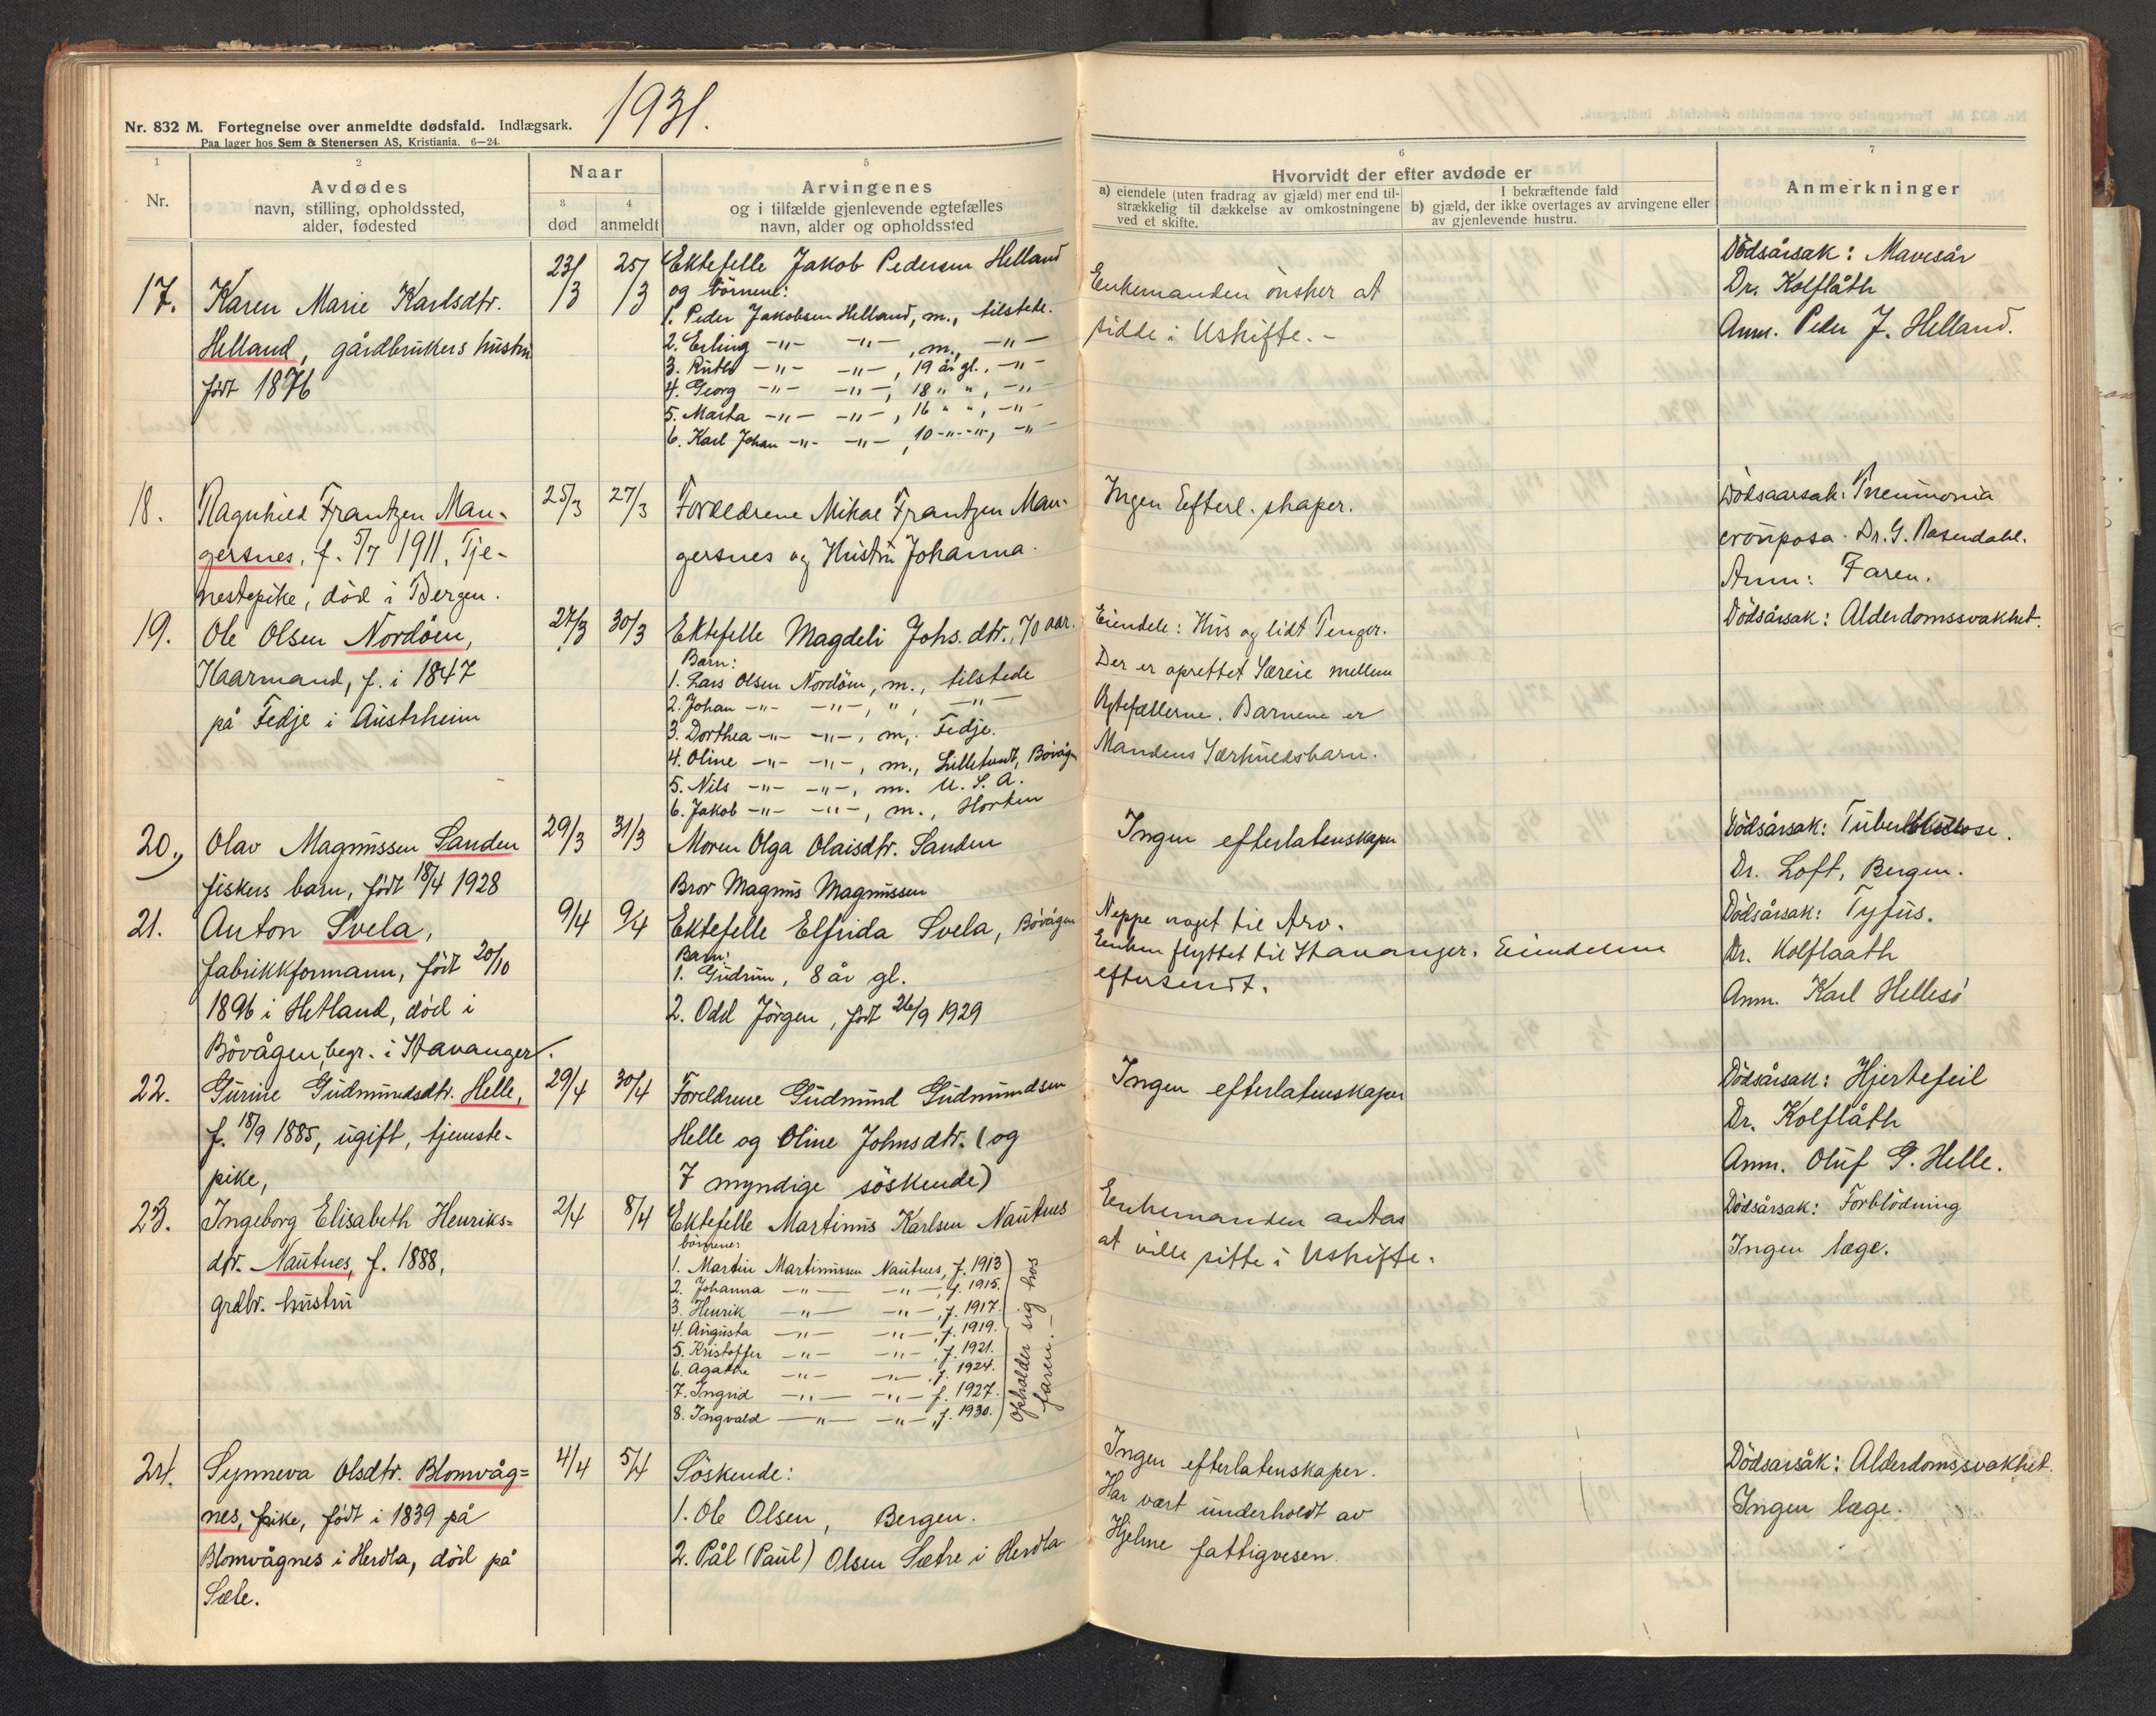 1931.
Nr. 832 M. Fortegnelse over anmeldte dødsfald. Indlægsark.
Paa lager hos Sem & Stenersen AS, Kristiania. 6—24.
1
Nr.
2
Avdødes
navn, stilling, opholdssted,
alder, fødested
Naar
3
død
4
anmeldt
5
Arvingenes
og i tilfælde gjenlevende egtefælles
navn, alder og opholdssted
6
Hvorvidt der efter avdøde er
a) eiendele (uten fradrag av gjæld) mer end til-
strækkelig til dækkelse av omkostningene
ved et skifte.
I bekræftende fald
b) gjæld, der ikke overtages av arvingene eller
av gjenlevende hustru.
7
Anmerkninger
17.
Karen Marie Karlsdtr.
Helland, gårdbrukers hustru
født 1876
23/3
25/3
Ektefelle Jakob Pedersen Helland
og börnene:
1. Peder Jakobsen Helland, m., tilstede.
2. Erling -"- -"-, m., -"-
3. Ruth -"- -"-, 19 år gl., -"-
4. Georg -"- -"-, 18 " ", -"-
5. Marta -"- -"-, 16 " ", -"-
6. Karl Johan -"- -"-, 10 -"-"-, -"-
Enkemanden önsker at
sidde i Uskifte. -
Dödsårsak: Mavesår
Dr. Kolflåth
Anm. Peder J. Helland.
18.
Ragnhild Frantzen Man-
gersnes, f. 5/7 1911, Tje-
nestepike, död i Bergen.
25/3
27/3
Foreldrene Mikal Frantzen Man-
gersnes og Hustru Johanna.
Ingen Efterl. skaper.
Dödsaarsak: Pneumonia
crouposa. Dr. G. Rosendahl.
Anm: Faren.
19.
Ole Olsen Nordöen,
Kaarmand, f. i 1847
på Fedje i Austrheim
27/3
30/3
Ektefelle Magdeli Johs. dtr., 70 aar.
Barn:
1. Lars Olsen Nordöen, m., tilstede
2. Johan -"- -"-, ", -"-
3. Dorthea -"- -"-, m., Fedje.
4. Oline -"- -"-, m., Lilletvedt, Bövågen
5. Nils -"- -"-, m. U. S. A.
6. Jakob -"- -"-, m., Horten
Eiendele: Hus og lidt Penger.
Der er oprettet Særeie mellem
Ægtefællerne. Barnene er
Mandens Særkuldsbarn.
Dödsårsak: Alderdomssvakhet.
20.
Olav Magnussen Sanden
fiskers barn, födt 18/4 1928
29/3
31/3
Moren Olga Olaisdtr. Sanden
Bror Magnus Magnussen
Ingen efterlatenskaper
Dödsårsak: Tuberkulose.
Dr. Loft, Bergen.
21.
Anton Svela,
fabrikkformann, född 20/10
1896 i Hetland, död i
Bövågen, begr. i Stavanger.
9/4
9/4
Ektefelle Elfrida Svela, Bövågen
Barn:
1. Gudrun, 8 år gl.
2. Odd Jörgen, födt 26/9 1929
Neppe noget til Arv.
Enken flyttet til Stavanger. Eiendelene
eftersendt.
Dödsårsak: Tyfus.
Dr. Kolflaath
Anm. Karl Hellesö
22.
Gurine Gudmundsdtr. Helle,
f. 18/9 1885, ugift, tjeneste-
pike,
29/4
30/4
Foreldrene Gudmund Gudmundsen
Helle og Oline Johnsdtr. (og
7 myndige söskende)
Ingen efterlatenskaper
Dödsårsak: Hjertefeil
Dr. Kolflåth
Anm. Oluf G. Helle.
23.
Ingeborg Elisabeth Henriks=
dtr. Nautnes, f. 1888,
grdbr. hustru
2/4
8/4
Ektefelle Martinus Karlsen Nautnes
börnene:
1. Martin Martinussen Nautnes, f. 1913
2. Johanna -"- -"-, f. 1915.
3. Henrik -"- -"-, f. 1917.
4. Augusta -"- -"-, f. 1919.
5. Kristoffer -"- -"-, f. 1921.
6. Agathe -"- -"-, f. 1924.
7. Ingrid -"- -"- f. 1927.
8. Ingvald -"- -"-, f. 1930.
Opholder sig hos
faren. -
Enkemanden antas
at ville sitte i Uskifte.
Dödsårsak: Forblödning
Ingen læge.
24.
Synneva Olsdtr. Blomvåg=
nes, pike, födt i 1839 på
Blomvågnes i Herdla, död på
Sæle.
4/4
5/4
Söskende:
1. Ole Olsen, Bergen.
2. Pål (Paul) Olsen Sætre i Herdla
Ingen efterlatenskaper.
Har vært underholdt av
Hjelme fattigvesen.
Dödsårsak: Alderdomssvakhet.
Ingen læge.